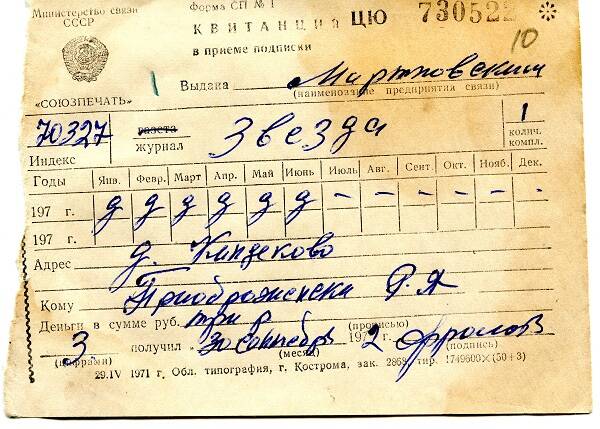 Министерство связи СССР
Форма СП № 1
КВИТАНЦИЯ ЦЮ 730522
в приеме подписки
10
Выдана Мартыновским
(наименоание предприятия связи)
«СОЮЗПЕЧАТЬ»
70327 газета журнал Звезда 1
Индекс колич. компл.
Годы Янв. Февр. Март Апр. Май Июнь Июль Авг. Сент. Окт. Нояб. Дек.
197 г. д д д д д д – – – – – –
197 г.
Адрес д. Киндеково
Кому Приображенски Ф. Я
Деньги в сумме руб. три р
(прописью)
3. получил 30 сентябрь 197 г. 2 Фролов
(цифрами) (месяц) (подпись)
29.IV 1971 г. Обл. типография, г. Кострома, зак. 2868, тир. 1749600×(50+3)